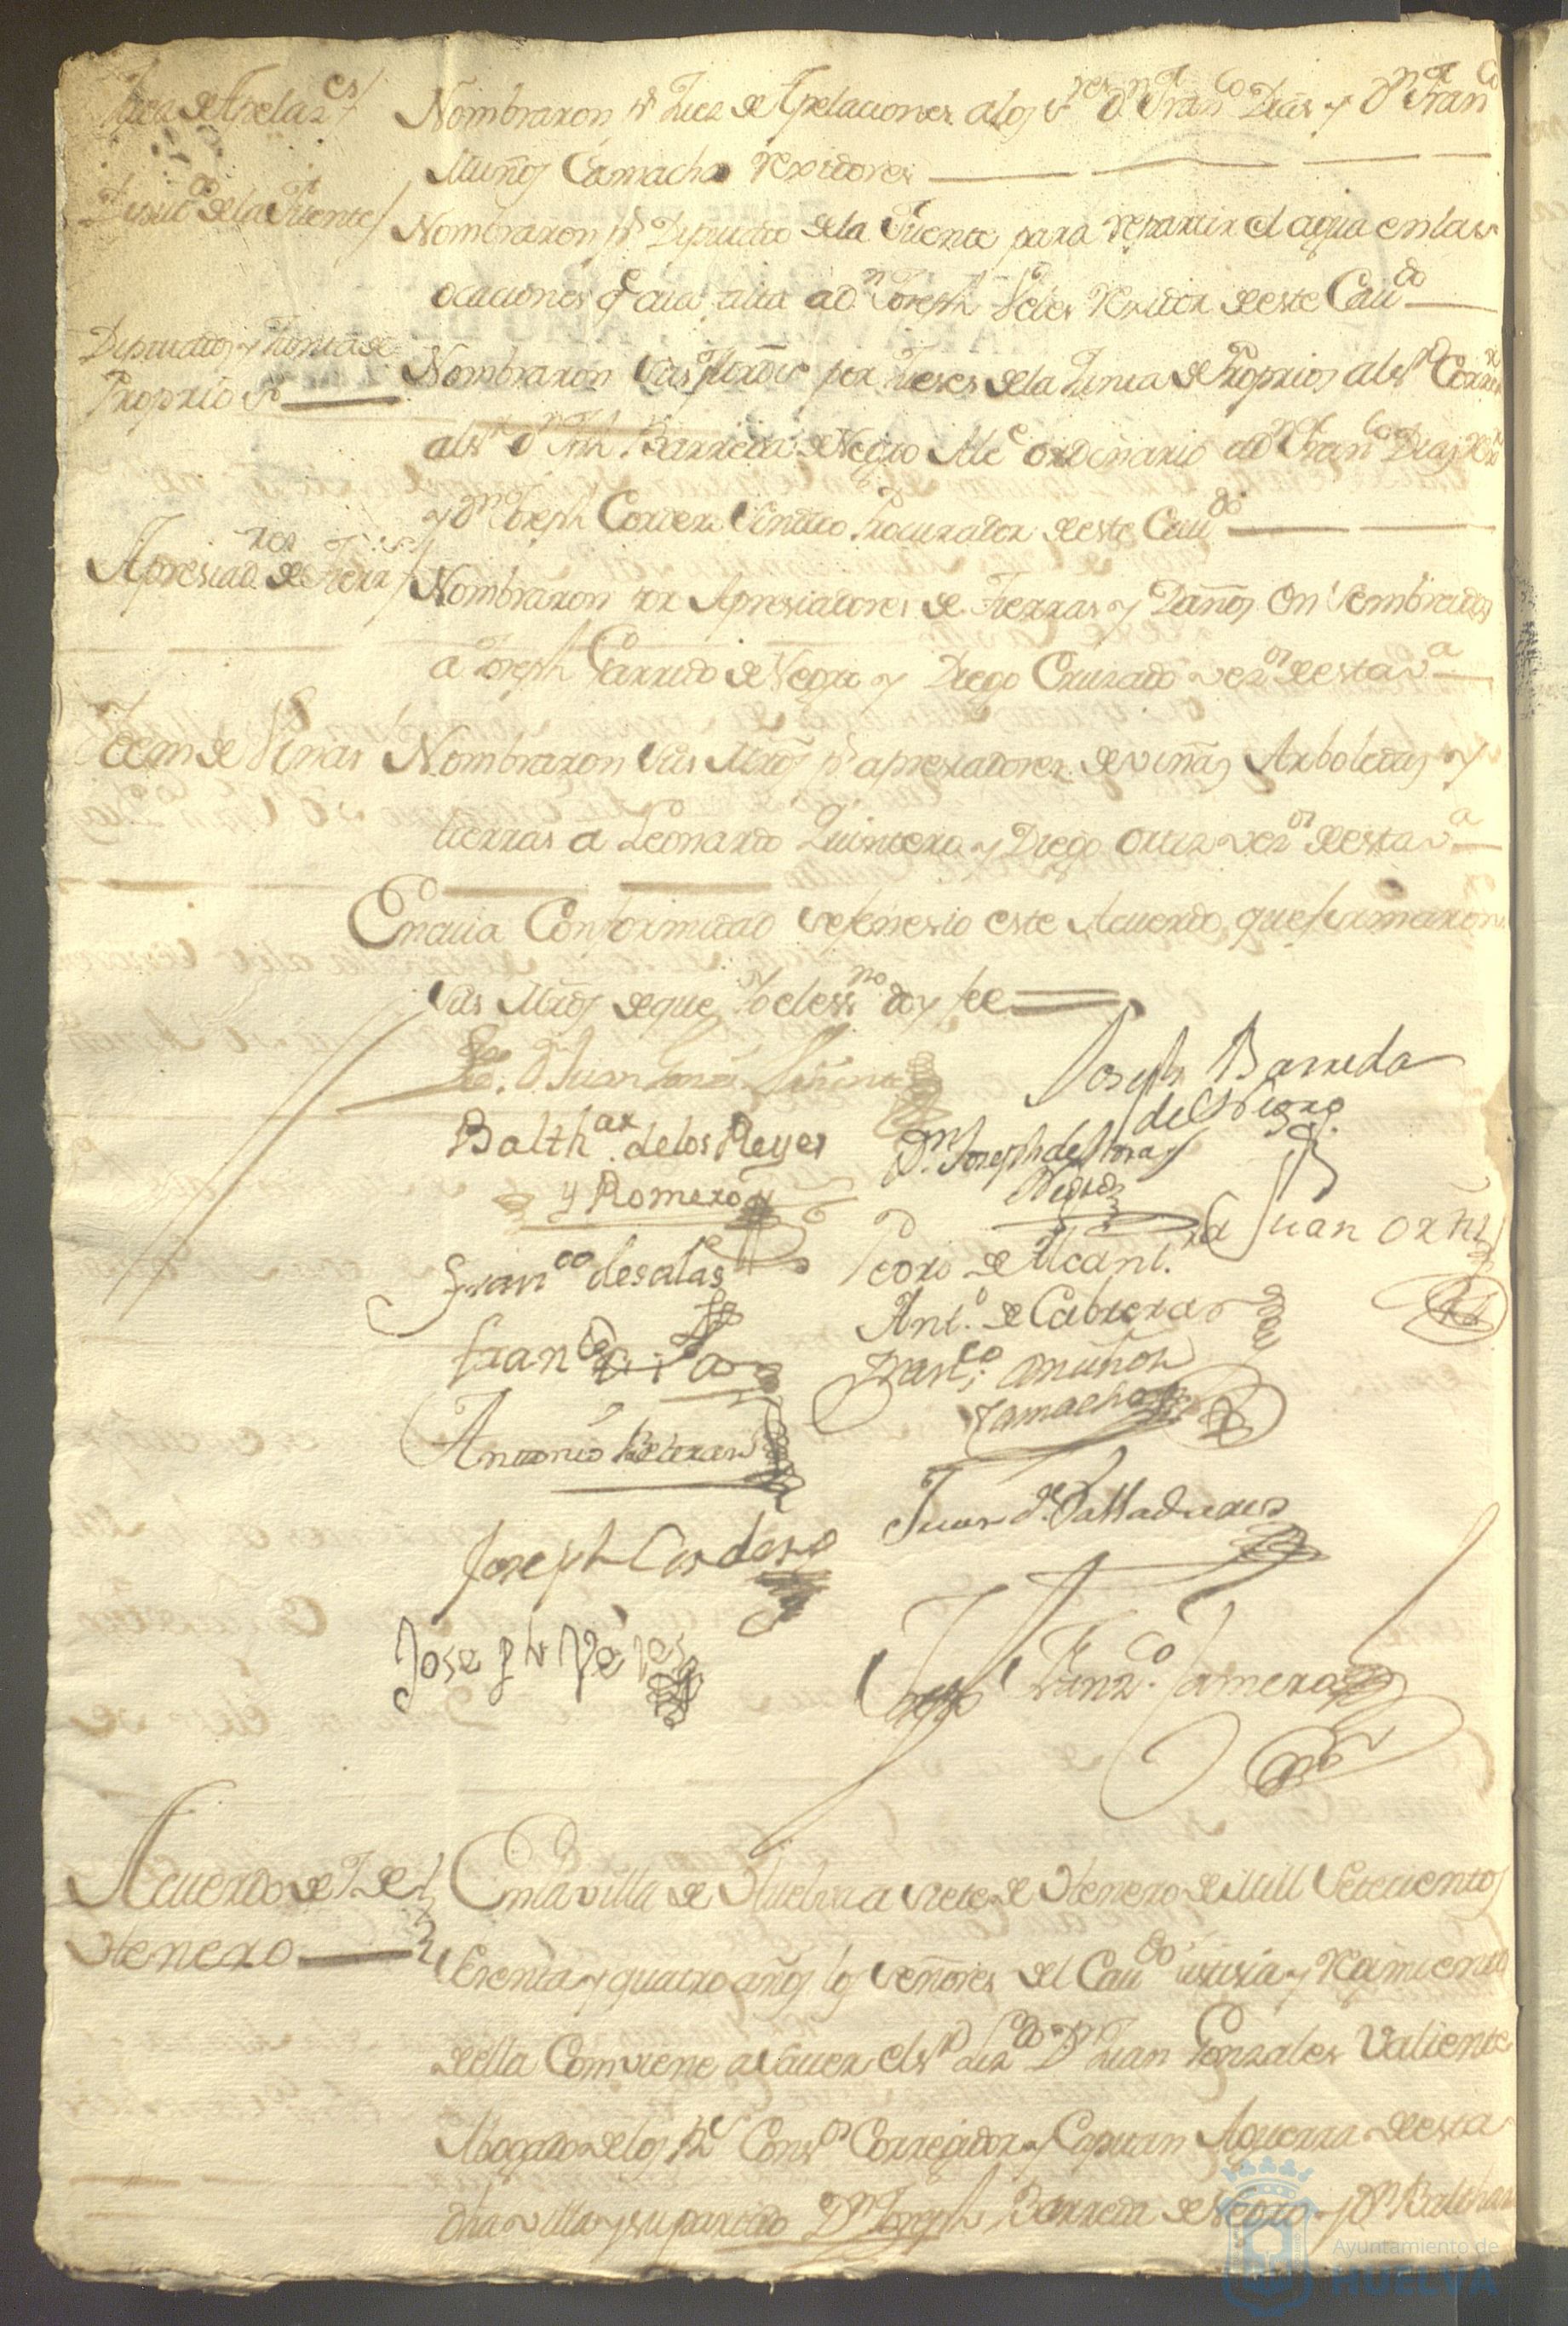 Juez de Apelaz.es
Nombraron pr Juez de Apelaciones a los sres Dn Franco Dias y Dn Franco
Muños Camacho Rexidores
Diputdo de la Fuente
Nombraron pr Diputado de la Fuente para repartir el agua en las
ocaciones q aia falta a Dn Joseph Veles Rexidor de este Caudo
Diputados y Junta de
Proprios
Nombraron Sus mrds por Jueses de la Junta de Proprios al sr Corrxr
al sr Dn Jph Barreda de Negro Alc ordinario a Dn Franco Dias Rxr
y Dn Joseph Cordero Sindico Procurador de este Caudo
Apresiadres de Tierra
Nombraron por Apresiadores de Tierras y Daños en sembrados
a Joseph Garrido de Negro y Diego Cruzado vezos de esta va
Idem de Viñas
Nombraron Sus Mrds pr apresiadores de viñas Arboledas y
tierras a Leonardo Quintero y Diego Ortiz vezos de esta va
En cuia Conformidad se fenesio este Acuerdo, que firmaron
Sus Mrds de que Yo el essno doy fee
Joseph Barreda
de Negro
Balthar. de los Reyes
y Romero
Dn Joseph de Mora y
Negro
Juan Ortiz
Franco de salas
Pedro de Alcant.ra
Ant.o de Cabrera
Franco Dias
Franco Muñoz
Camacho
Antonio Beteran
Juan de Valladares
Joseph Cordero
Joseph Veles
Franzco Jamera
Acuerdo de 7 de
Henero
En la villa de Huelva a siete de Henero de Mill Setecientos
Sesenta y quatro años los Señores del Caudo Justisia y Regimiento
de ella Comviene a sauer el sr Lizdo Dn Juan Gonzales Valiente
Abogado de los Rs Consos Corregidor y Capitan Aguerra de esta
dha villa y su partido Dn Joseph Barreda de Negro y Dn Balthar
Ayuntamiento de
HUELVA